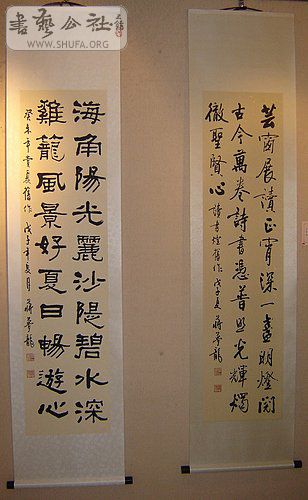 書藝公社
WWW.SHUFA.ORG
芸窗展讀正宵深一盞明燈閱
古今萬卷詩書憑普照光輝燭
徹聖賢心 讀書燈舊作 戊子夏 蔣夢龍
海角陽光麗沙隄碧水深
雞籠風景好夏日暢遊心
癸未年舊作 戊子年夏月 蔣夢龍